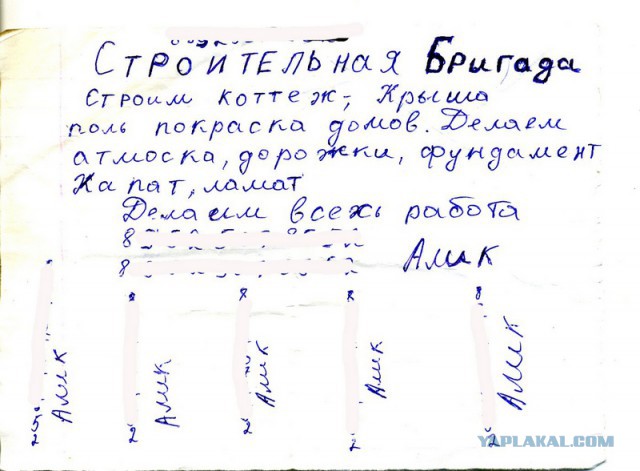 Строительная Бригада
Строим коттеж-, Крыша
поль покраска домов. Делаем
атмоска, дорожки, фундамент
Капат, ламат
Делаим всехь работа
8
8 Амик
Амик
Амик
Амик
Амик
Амик
YAPLAKAL.COM